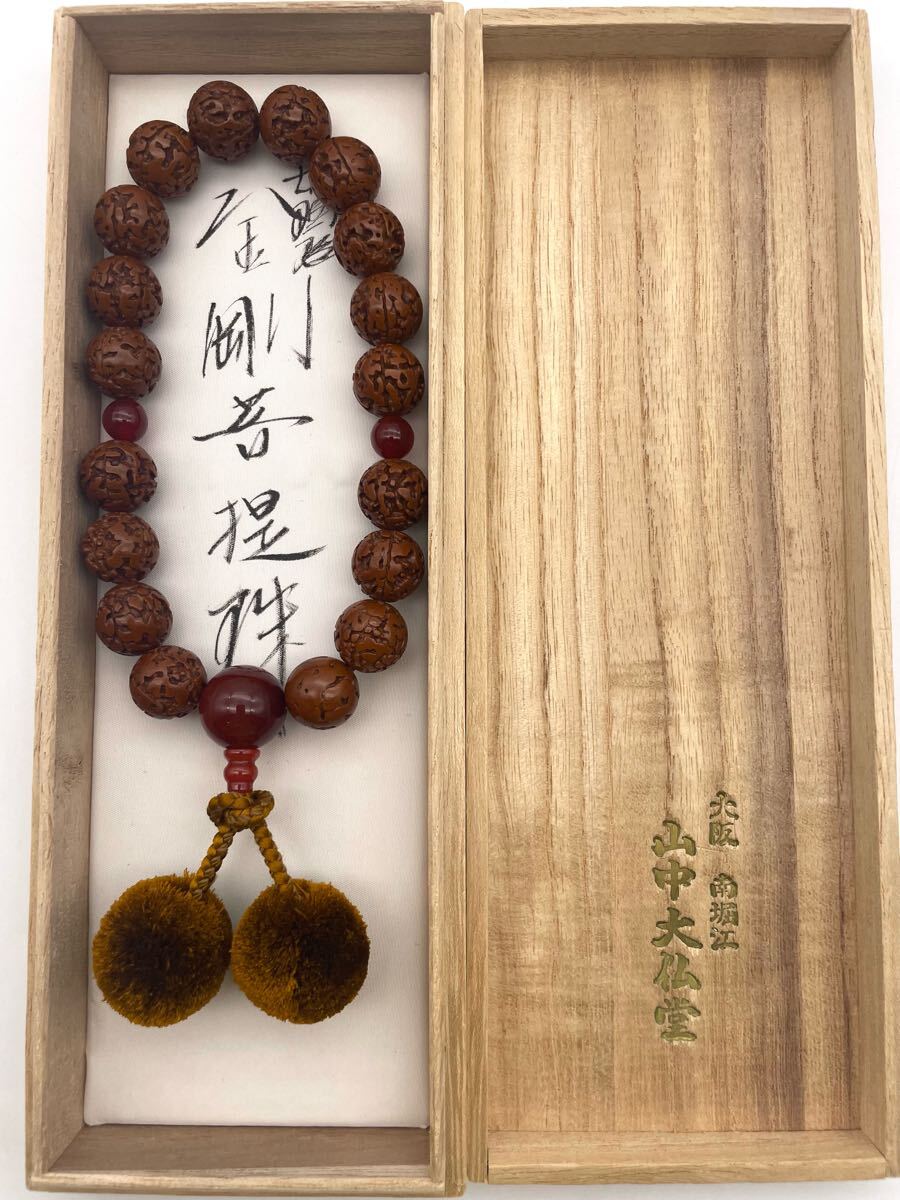 金剛菩提珠
大阪 南堀江
山中大仏堂